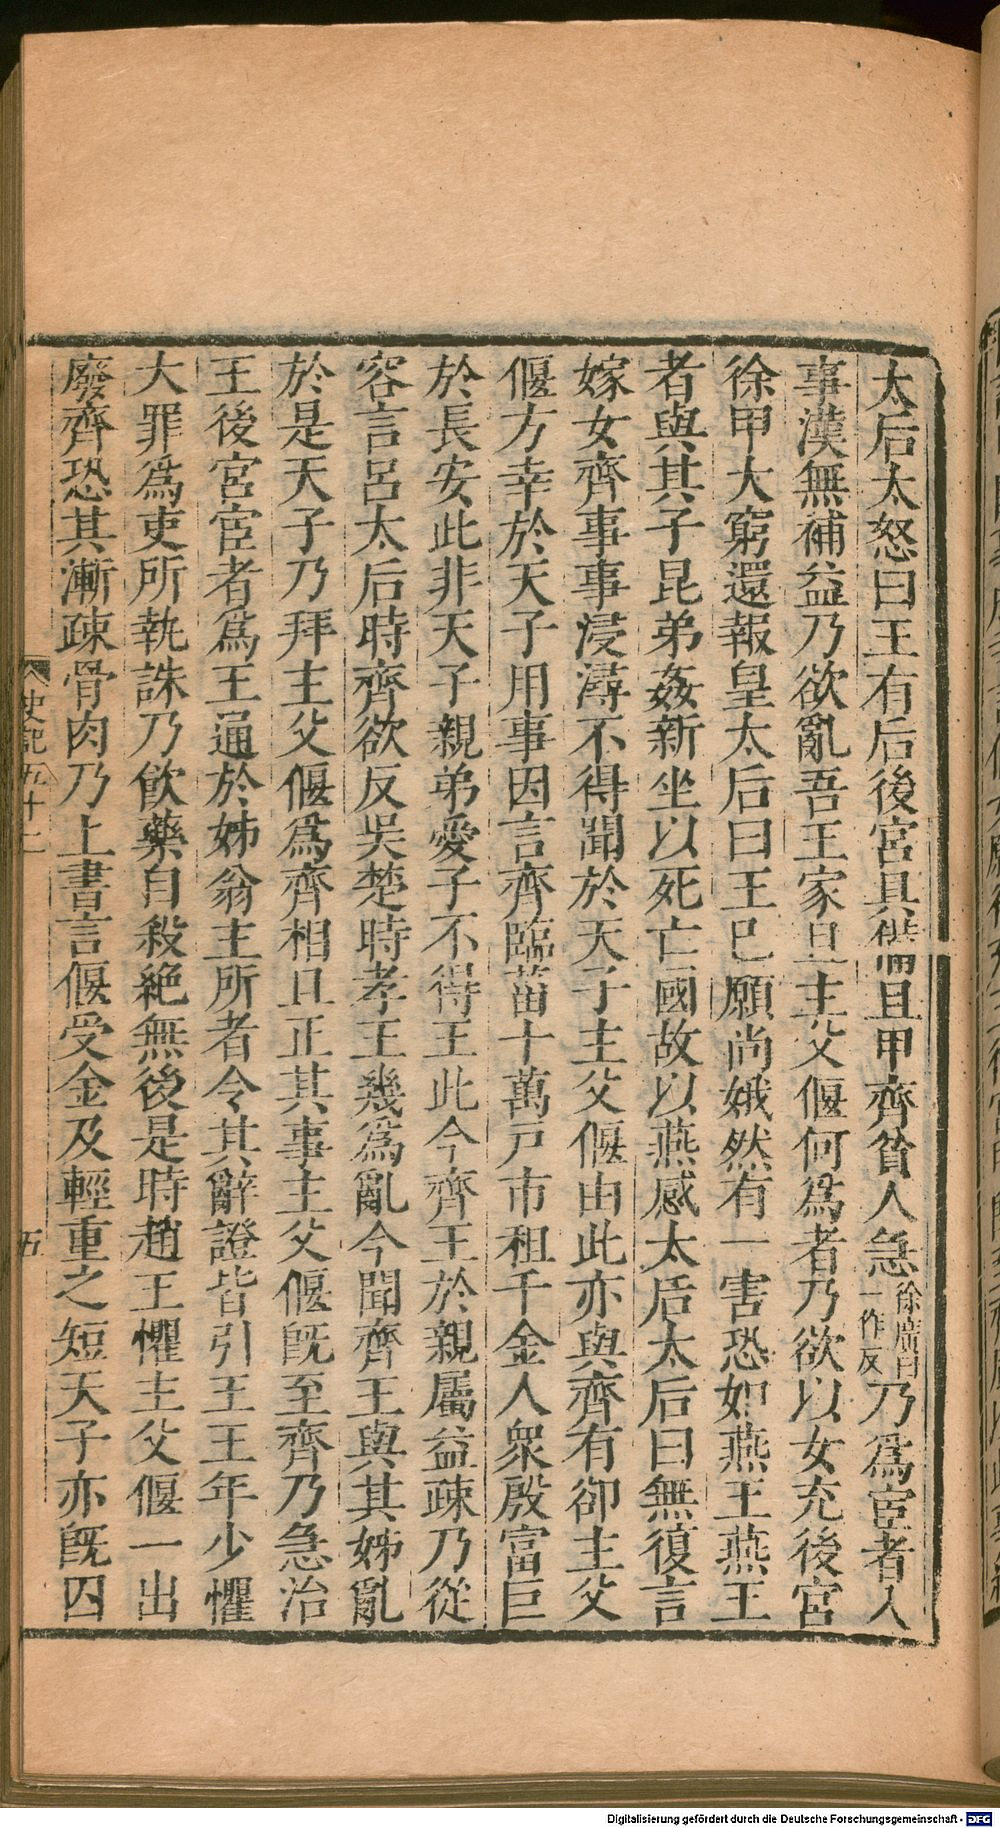 太后太怒曰王有后後宮具備且甲齊貧人急徐廣曰一作及乃爲宦者入
事漢無補益乃欲亂吾王家且主父偃何爲者乃欲以女充後宮
徐甲大窮還報皇太后曰王已願尚娥然有一害恐如燕王燕王
者與其子昆弟姦新坐以死亡國故以燕感太后太后曰無復言
嫁女齊事事浸潯不得聞於天子主父偃由此亦與齊有卻主父
偃方幸於天子用事因言齊臨菑十萬戸市租千金人衆殷富巨
於長安此非天子親弟愛子不得王此今齊王於親屬益疎乃從
容言呂太后時齊欲反吳楚時孝王幾爲亂今聞齊王與其姊亂
於是天子乃拜主父偃爲齊相且正其事主父偃旣至齊乃急治
王後宮宦者爲王通於姊翁主所者令其辭證皆引王王年少懼
大罪爲吏所執誅乃飮藥自殺絕無後是時趙王懼主父偃一出
廢齊恐其漸疎骨肉乃上書言偃受金及輕重之短天子亦旣囚
史記五十二
五
Digitalisierung gefördert durch die Deutsche Forschungsgemeinschaft - DFG